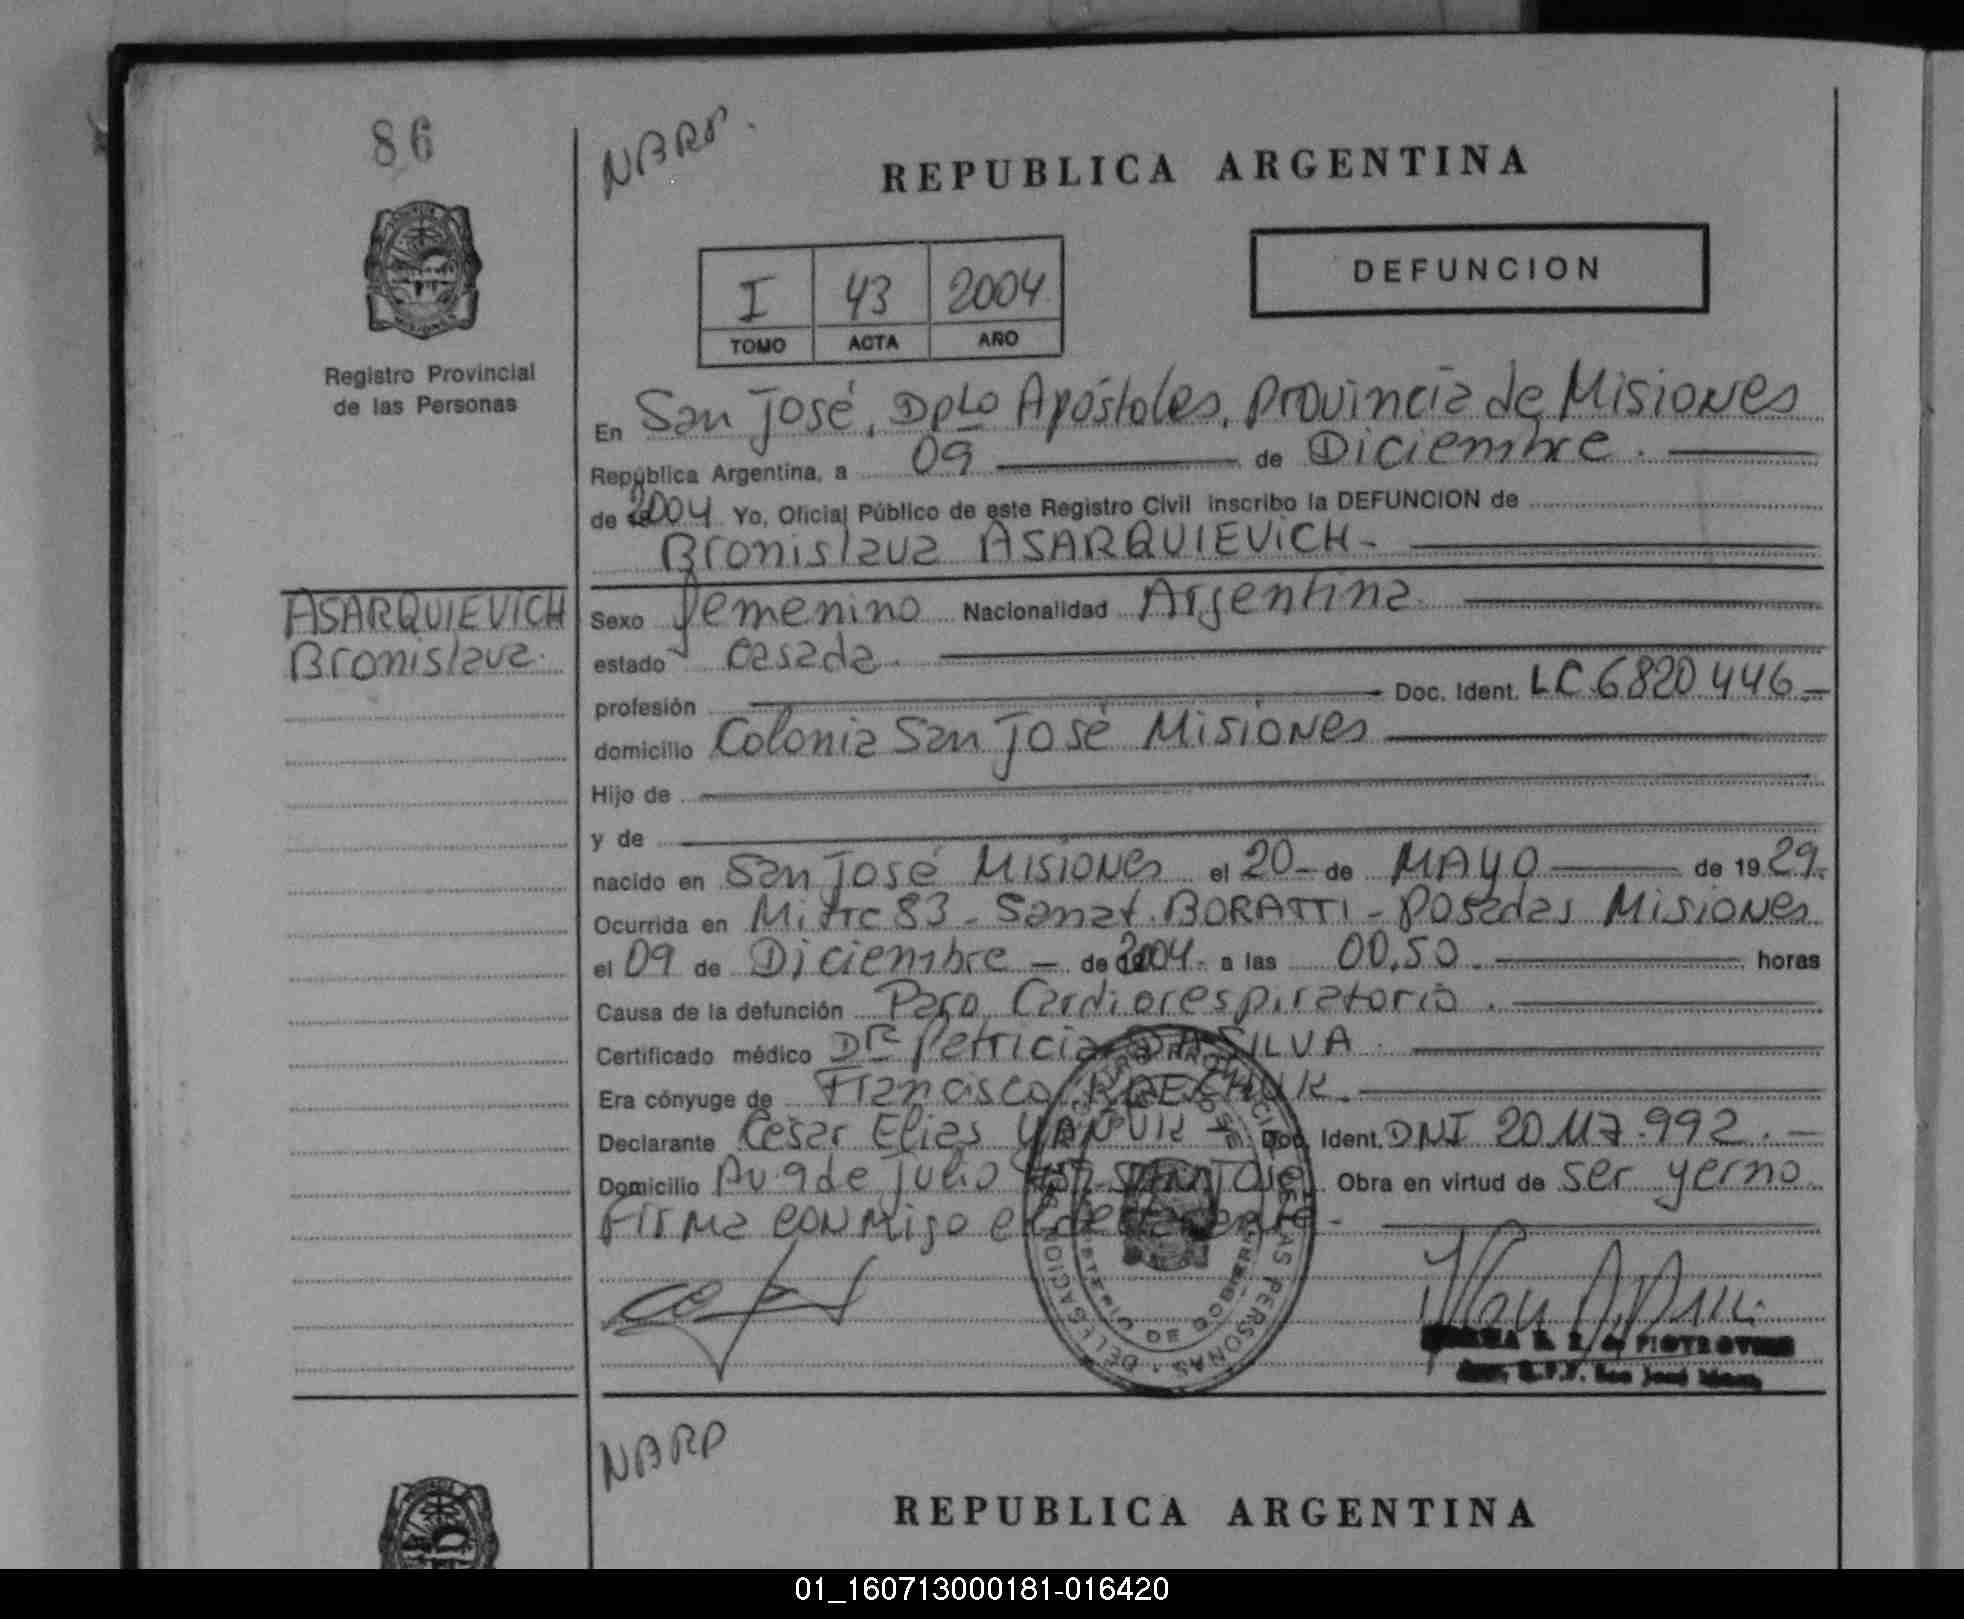 86
NBRP.
REPUBLICA ARGENTINA
I 43 2004
TOMO ACTA AÑO
DEFUNCION
Registro Provincial
de las Personas
En San José, Dpto Apóstoles, Provincia de Misiones
República Argentina, a 09 de Diciembre.
de 2004 Yo, Oficial Público de este Registro Civil inscribo la DEFUNCION de
Bronislava ASARQUIEVICH-
ASARQUIEVICH
Bronislava.
Sexo femenino Nacionalidad Argentina
estado casada.
profesión Doc. Ident. LC 6820446-
domicilio Colonia San José Misiones
Hijo de
y de
nacido en San José Misiones el 20 - de MAYO de 19 29.
Ocurrida en Mitre 83 - Sanat. BORATTI - Posadas Misiones
el 09 de Diciembre - de 2004. a las 00,50. horas
Causa de la defunción Paro Cardiorespiratorio.
Certificado médico Dr Patricia DA SILVA
Era cónyuge de Francisco
Declarante Cesar Elias Doc. Ident. DNI 20.117.992. -
Domicilio Av 9 de Julio SAN JOSE Obra en virtud de ser yerno
Firma conmigo el declarante-
DELEGACION
LAS PERSONAS
DE GOBIERNO
PIOTROVSKI
San José
NBRP
REPUBLICA ARGENTINA
01_160713000181-016420